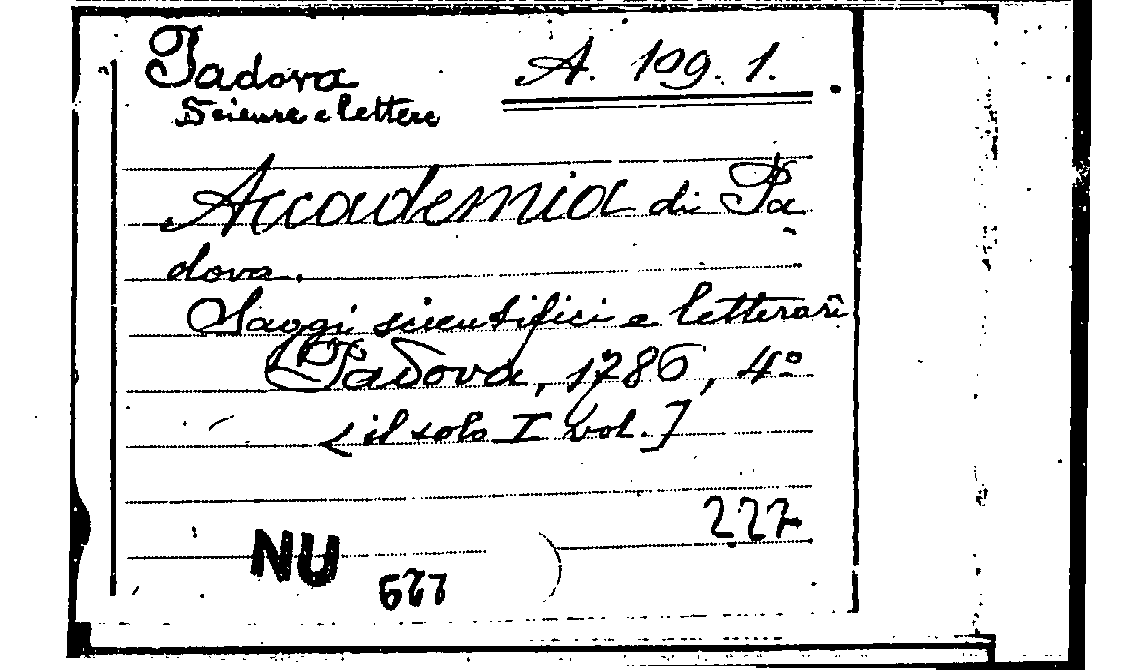 Padova
A. 109. 1.
Scienze e lettere
Accademia di Pa
dova.
Saggi scientifici e letterari
Padova, 1786, 4º
[il solo I vol.]
227
NU